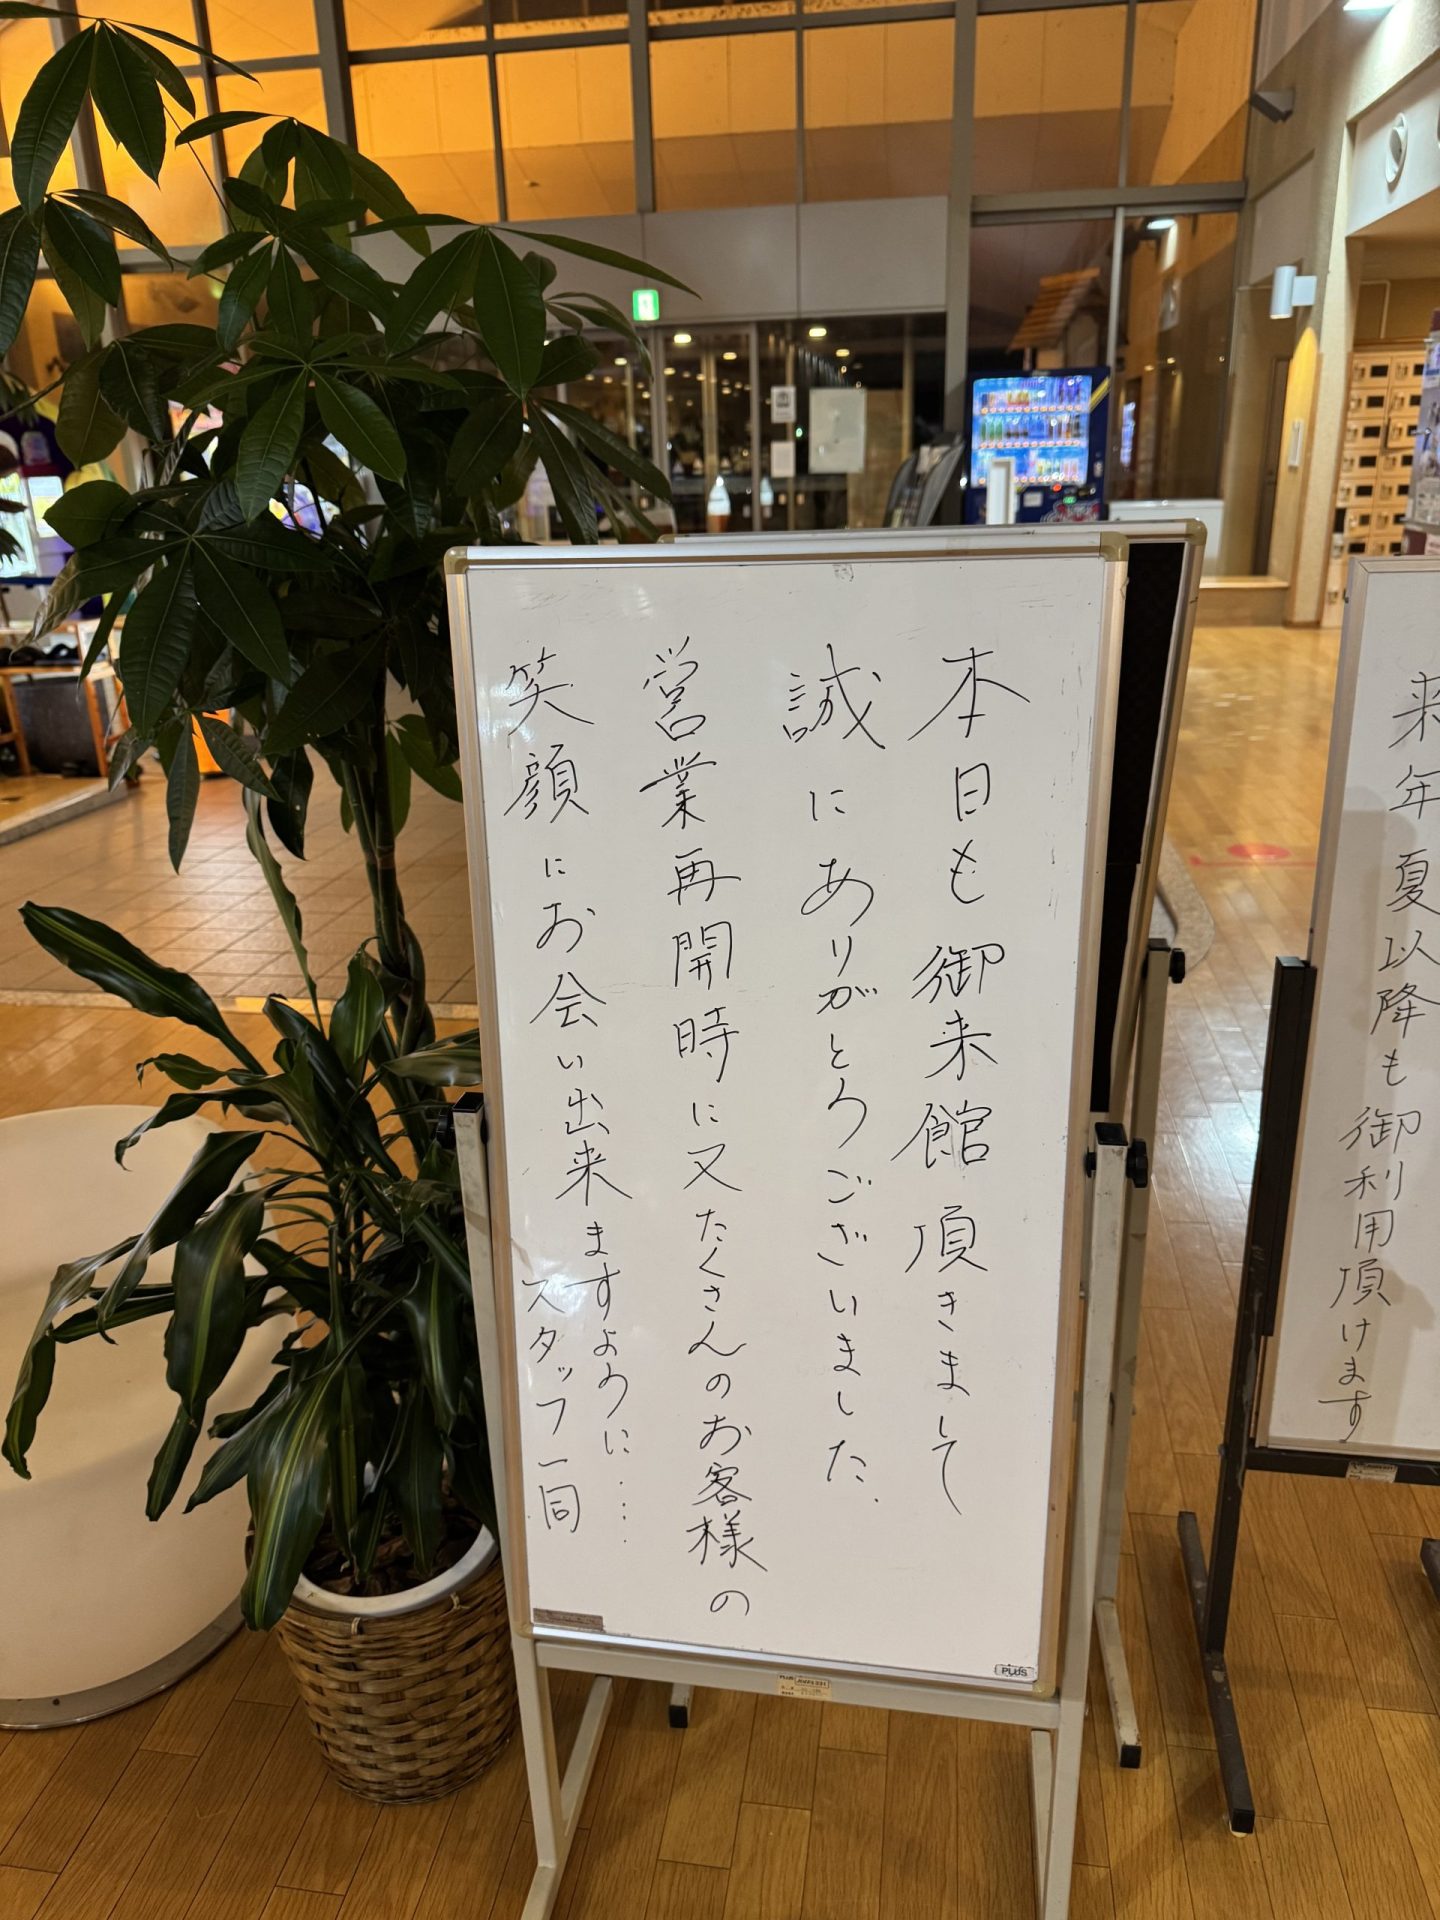 本日も御来館頂きまして
誠にありがとうございました.
営業再開時に又たくさんのお客様の
笑顔にお会い出来ますように……
スタッフ一同
PLUS
来年夏以降も御利用頂けます